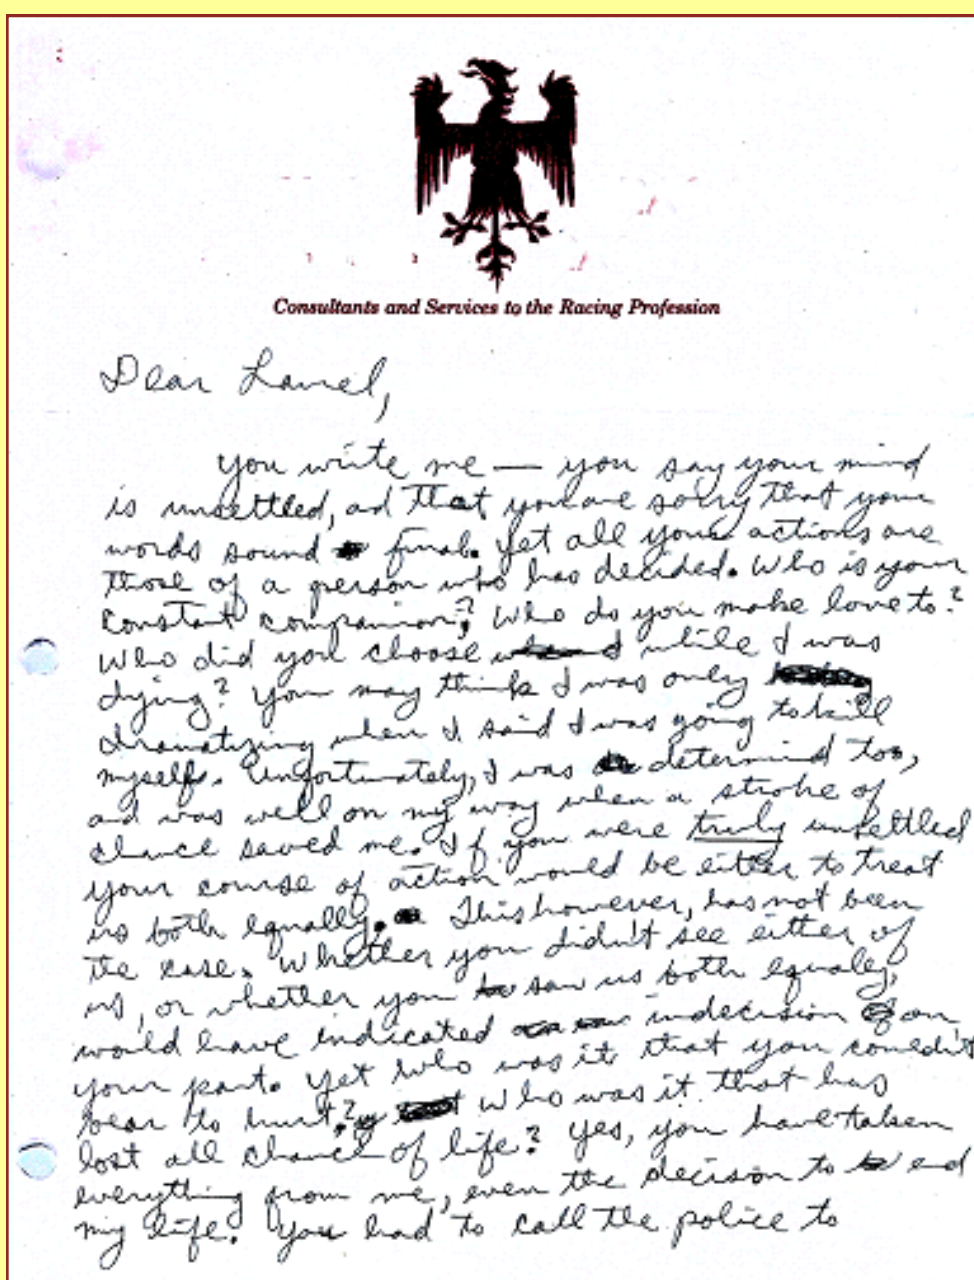 Consultants and Services to the Racing Profession
Dear Laurel,
you write me — you say your mind
is unsettled, ad that you are sorry that your
words sound final. Yet all your actions are
those of a person who has decided. Who is your
constant companion? Who do you make love to?
Who did you choose while I was
dying? You may think I was only
dramatizing when I said I was going to kill
myself. Unfortunately, I was determined too,
and was well on my way when a stroke of
chance saved me. If you were truly unsettled
your course of action would be either to treat
us both equally. This however, has not been
the case. Whether you didn't see either of
us, or whether you saw us both equaley,
would have indicated indecision on
your part. Yet who was it that you couldn't
bear to hurt? Who was it that has
lost all chance of life? Yes, you have taken
everything from me, even the decision to end
my life. You had to call the police to